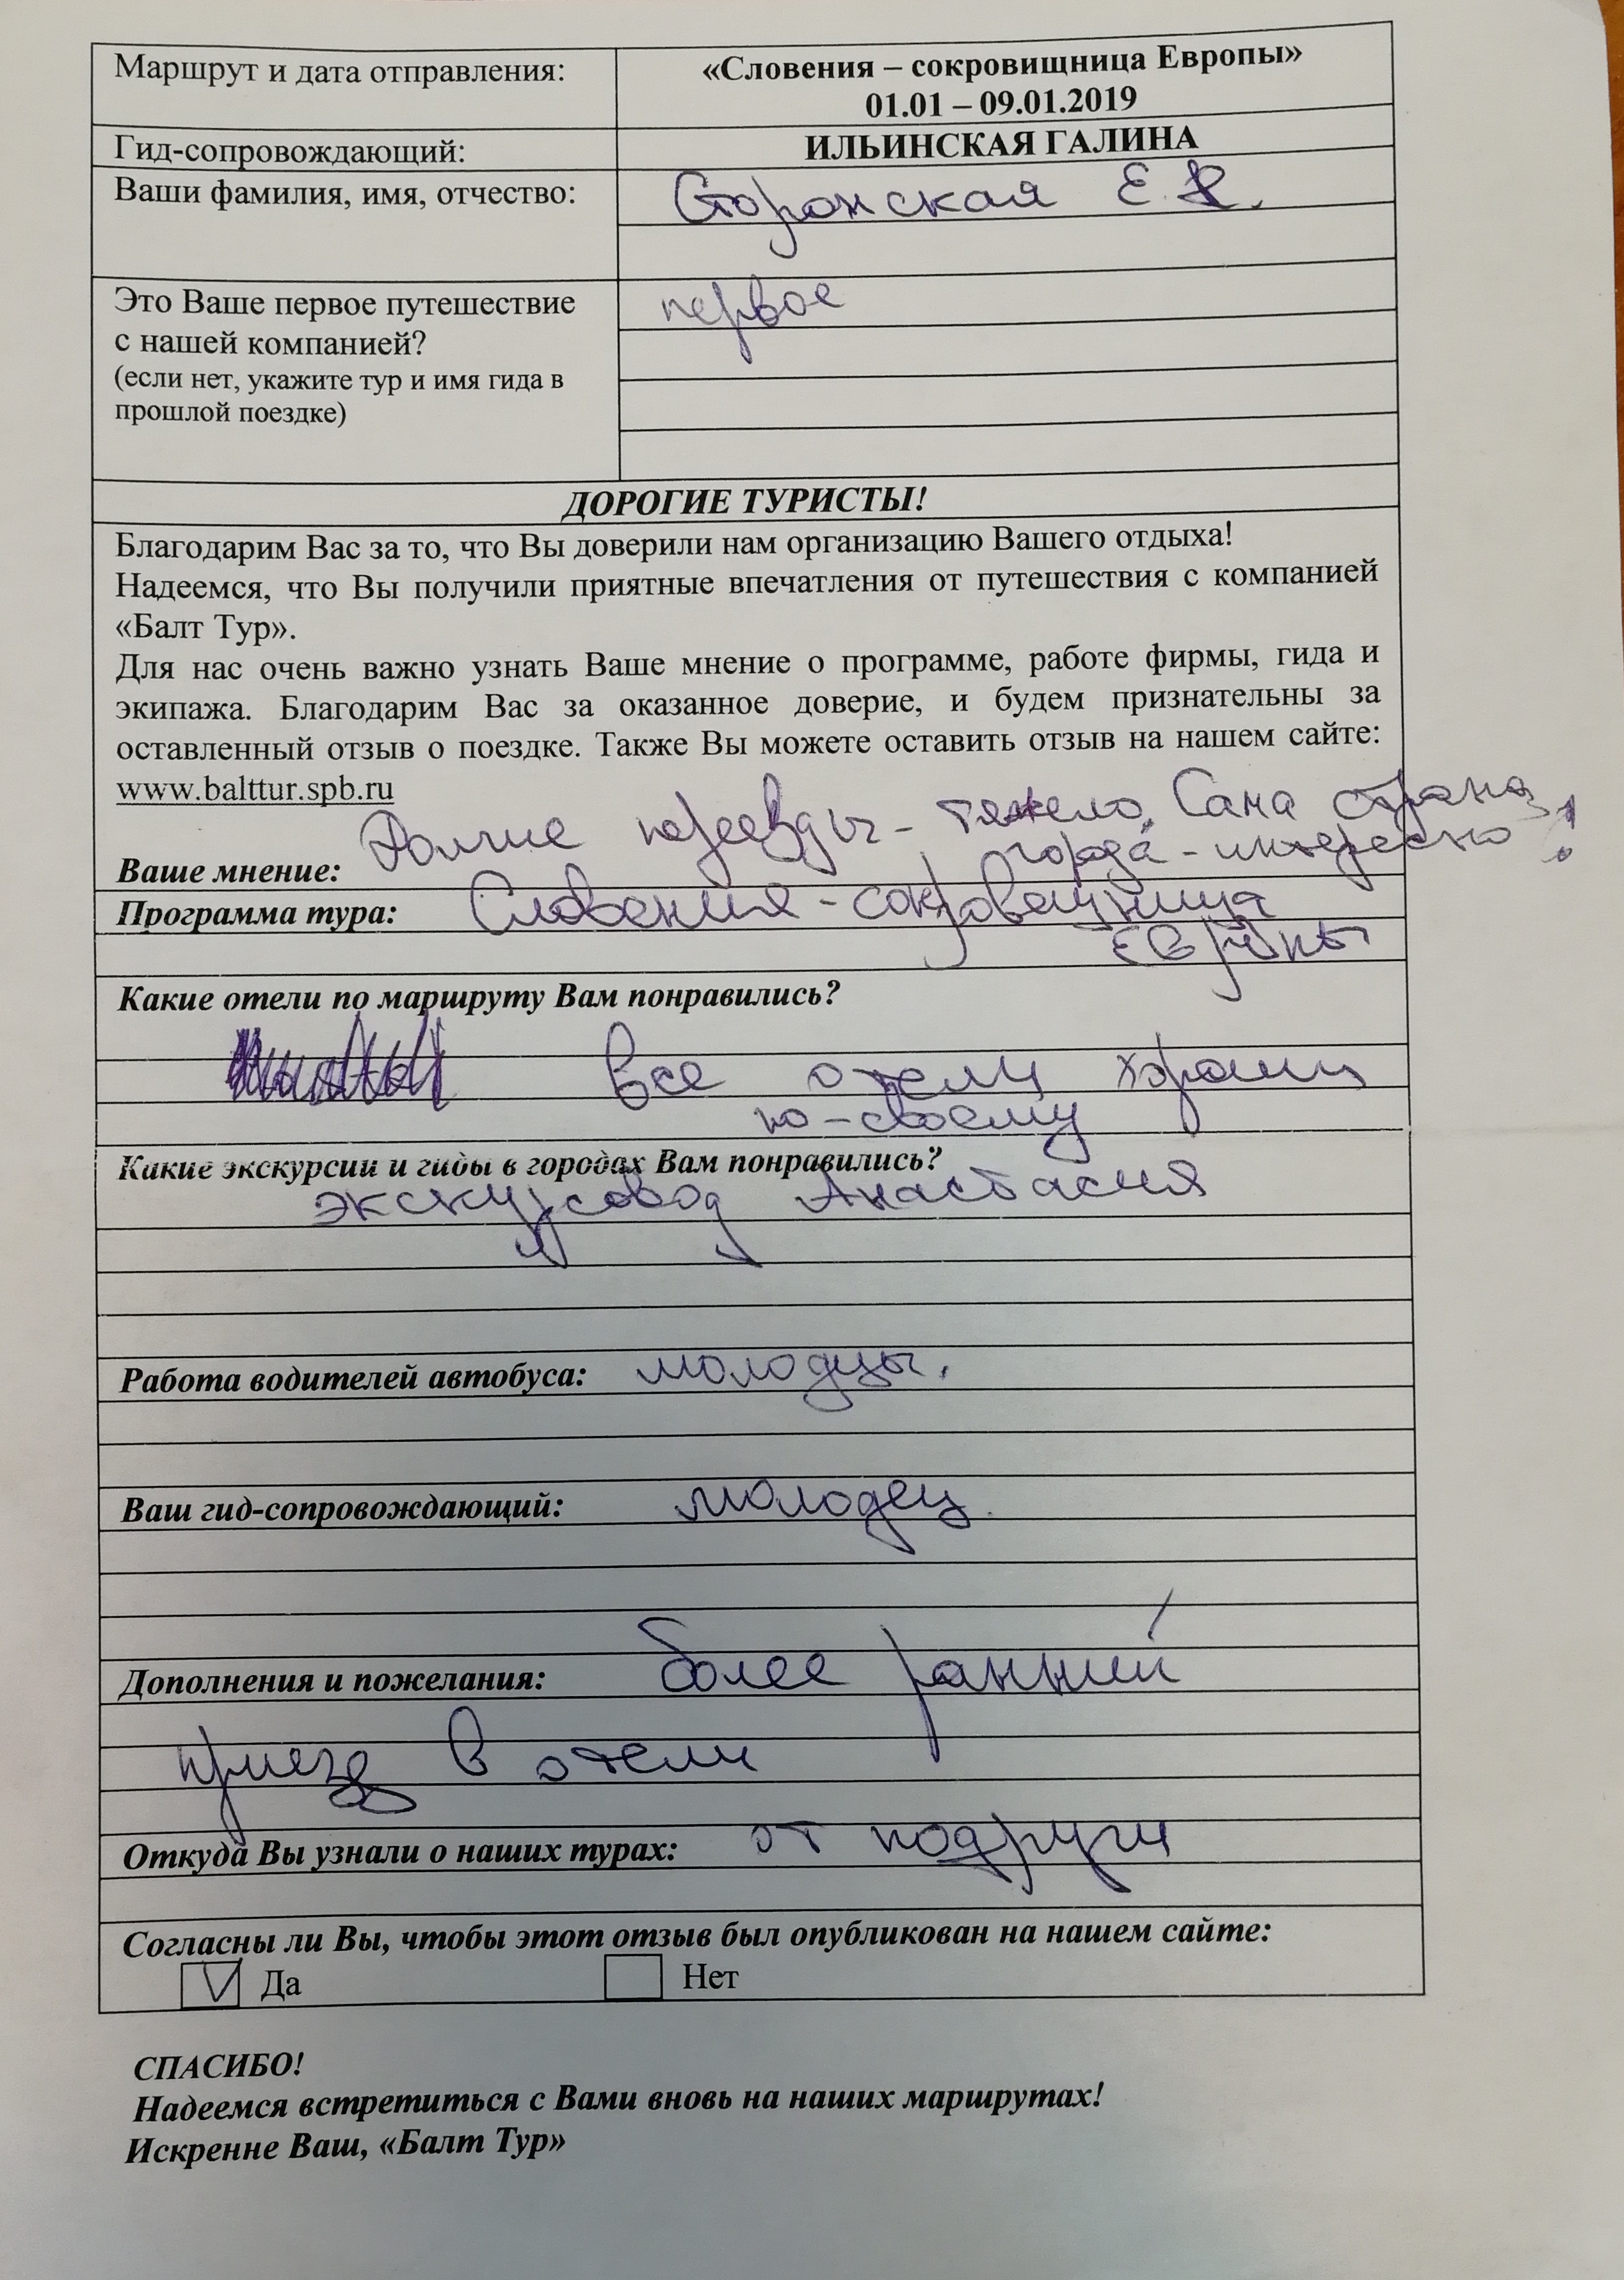 Маршрут и дата отправления:
«Словения – сокровищница Европы»
01.01 – 09.01.2019
Гид-сопровождающий:
ИЛЬИНСКАЯ ГАЛИНА
Ваши фамилия, имя, отчество:
Сторонская Е.
Это Ваше первое путешествие
с нашей компанией?
(если нет, укажите тур и имя гида в
прошлой поездке)
первое
ДОРОГИЕ ТУРИСТЫ!
Благодарим Вас за то, что Вы доверили нам организацию Вашего отдыха!
Надеемся, что Вы получили приятные впечатления от путешествия с компанией
«Балт Тур».
Для нас очень важно узнать Ваше мнение о программе, работе фирмы, гида и
экипажа. Благодарим Вас за оказанное доверие, и будем признательны за
оставленный отзыв о поездке. Также Вы можете оставить отзыв на нашем сайте:
www.balttur.spb.ru
Ваше мнение: Долгие переезды - тяжело. Сама страна,
города - интересно!
Программа тура: Словения - сокровещница
Европы
Какие отели по маршруту Вам понравились?
все отели хороши
по-своему
Какие экскурсии и гиды в городах Вам понравились?
экскурсовод Анастасия
Работа водителей автобуса: молодцы.
Ваш гид-сопровождающий: молодец.
Дополнения и пожелания: более ранний
приезд в отели
Откуда Вы узнали о наших турах: от подруги
Согласны ли Вы, чтобы этот отзыв был опубликован на нашем сайте:
V Да Нет
СПАСИБО!
Надеемся встретиться с Вами вновь на наших маршрутах!
Искренне Ваш, «Балт Тур»